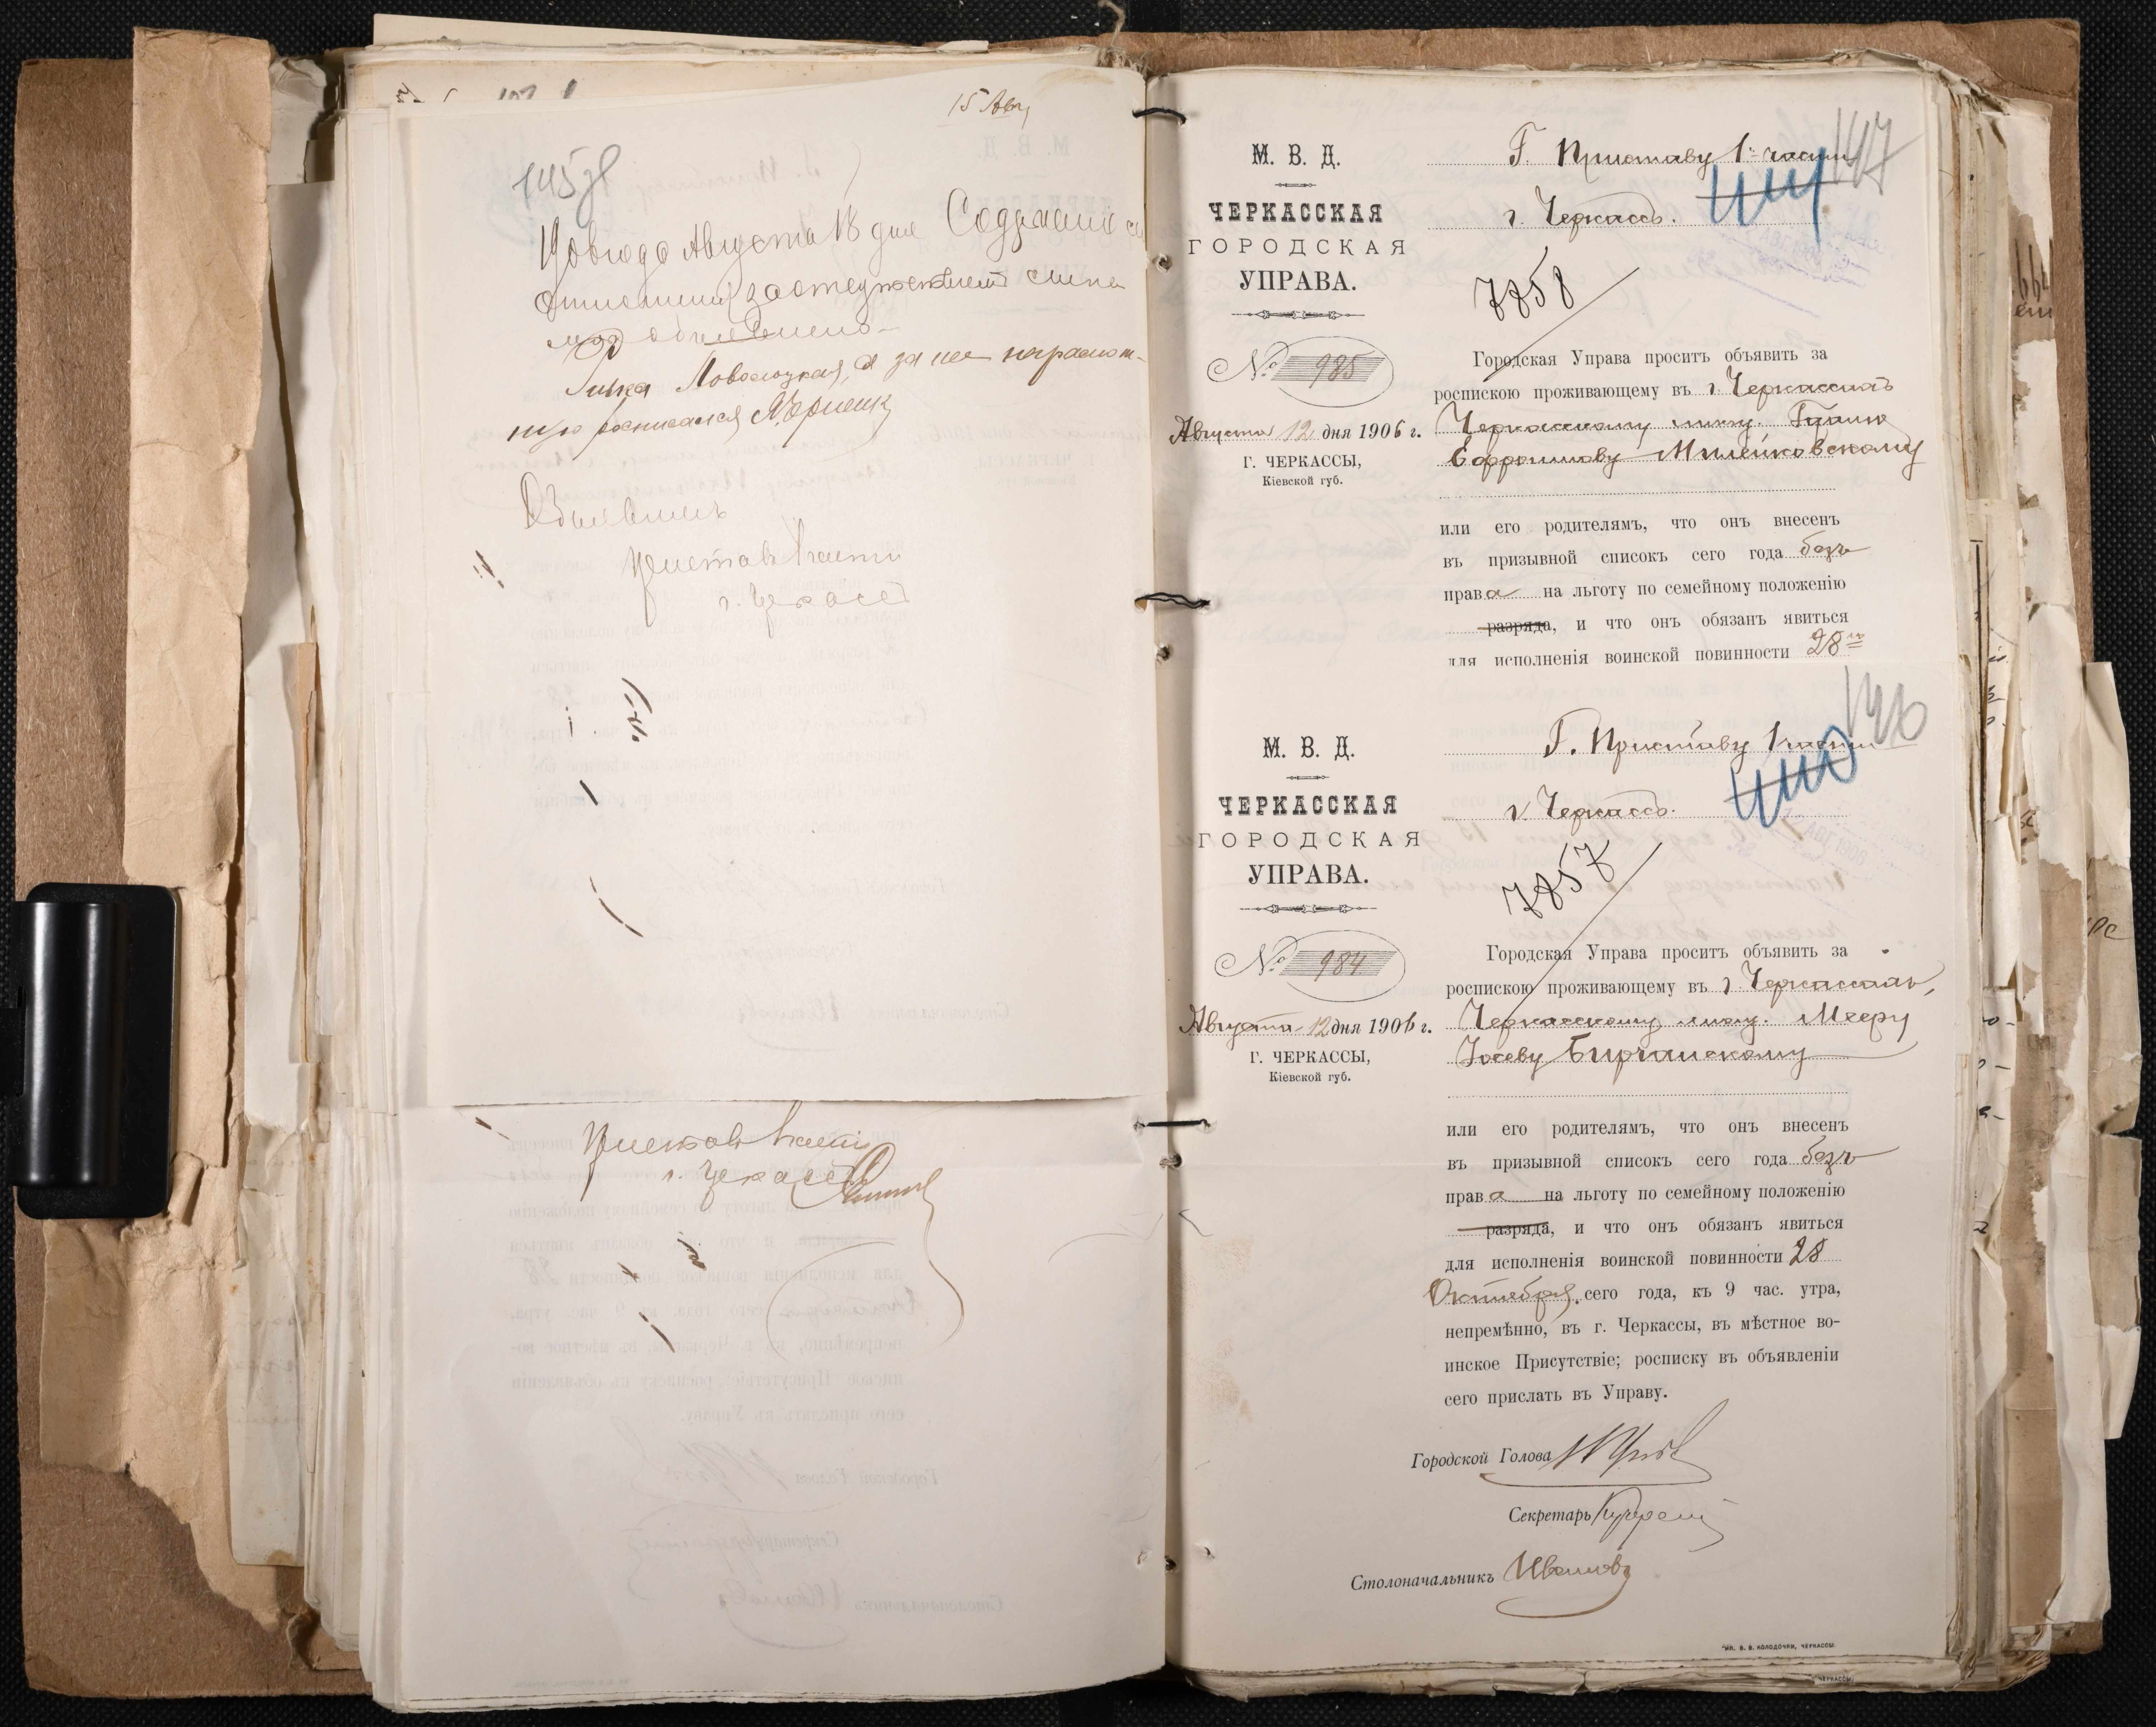 15 Авг
145 об
1906 года Августа 18 дня Содержание сей
отношения за отсутствием сына
мне объявлено
Ливка Новоселецкая, а за нее неграмот-
ную росписался
Объявилъ
Приставъ 1 части
г. Черкассъ
Приставъ 1 части
г. Черкассъ
147
М. В. Д.
ЧЕРКАССКАЯ
ГОРОДСКАЯ
УПРАВА.
№ 985
Августа 12 дня 1906 г.
Г. ЧЕРКАССЫ,
Кіевской губ.
Г. Приставу 1й части
г. Черкассъ.
7858
Городская Управа проситъ объявить за
роспискою проживающему въ г. Черкассахъ
Черкасскому мѣщ.
Ефроимову Милейковскому
или его родителямъ, что онъ внесенъ
въ призывной списокъ сего года безъ
права на льготу по семейному положенію
разряда, и что онъ обязанъ явиться
для исполненія воинской повинности 28го
146
М. В. Д.
ЧЕРКАССКАЯ
ГОРОДСКАЯ
УПРАВА.
№ 984
Августа 12 дня 1906 г.
Г. ЧЕРКАССЫ,
Кіевской губ.
Г. Приставу 1 части
г. Черкассъ.
12 АВГ 1906
7857
Городская Управа проситъ объявить за
роспискою проживающему въ г. Черкассахъ,
Черкасскому мѣщ. Мееру
Іосеву Бирчанскому
или его родителямъ, что онъ внесенъ
въ призывной списокъ сего года безъ
права на льготу по семейному положенію
разряда, и что онъ обязанъ явиться
для исполненія воинской повинности 28
Октября сего года, къ 9 час. утра,
непремѣнно, въ г. Черкассы, въ мѣстное во-
инское Присутствіе; росписку въ объявленіи
сего прислать въ Управу.
Городской Голова
Секретарь
Столоначальникъ Ивановъ
ТИП. В. В. КОЛОДОЧКИ, ЧЕРКАССЫ.